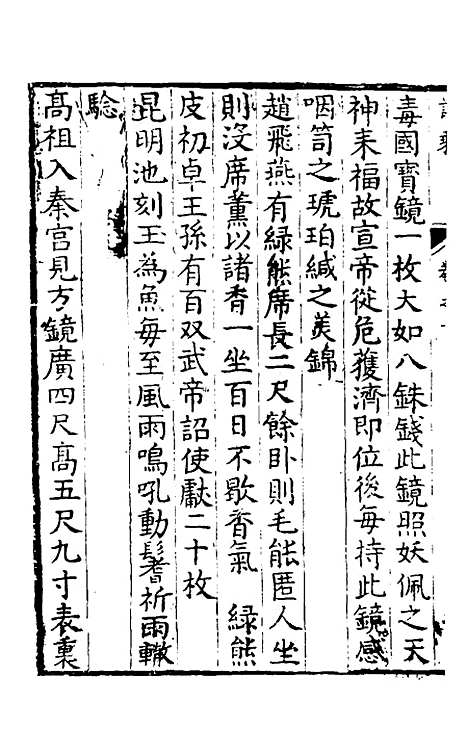 毒國寶鏡一枚大如八銖錢此鏡照妖佩之天
神来福故宣帝從危獲濟即位後每持此鏡感
咽笥之琥珀緘之羙錦
趙飛燕有緑熊席長二尺餘卧則毛能匿人坐
則没席薰以諸香一坐百日不歇香氣　緑熊
皮初卓王孫有百双武帝詔使獻二十枚
昆明池刻玉為魚每至風雨鳴吼動鬐祈雨輙
騐
髙祖入秦宫見方鏡廣四尺髙五尺九寸表裏